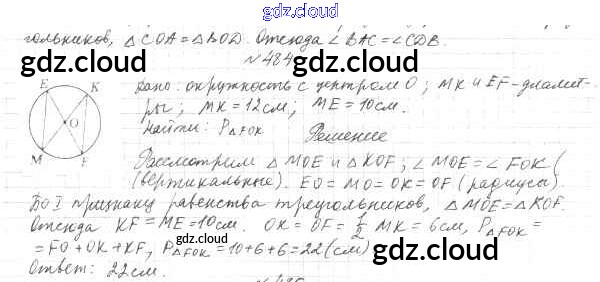 gdz.cloud
гольников, △COA = △BOD. Отсюда ∠BAC = ∠CDB.
№484
gdz.cloud gdz.cloud
Дано: окружность с центром O; MK и EF-диамет-
ры; MK = 12 см; ME = 10 см.
Найти: P△FOK
Решение
E K O M F
gdz.cloud gdz.cloud
Рассмотрим △MOE и △KOF; ∠MOE = ∠FOK (
(вертикальные). EO = MO = OK = OF (радиусы).
По I признаку равенства треугольников, △MOE = △KOF.
Отсюда KF = ME = 10 см. OK = OF = 1/2 MK = 6 см, P△FOK =
= FO + OK + KF, P△FOK = 10 + 6 + 6 = 22 (см)
gdz.cloud gdz.cloud
Ответ: 22 см.
gdz.cloud